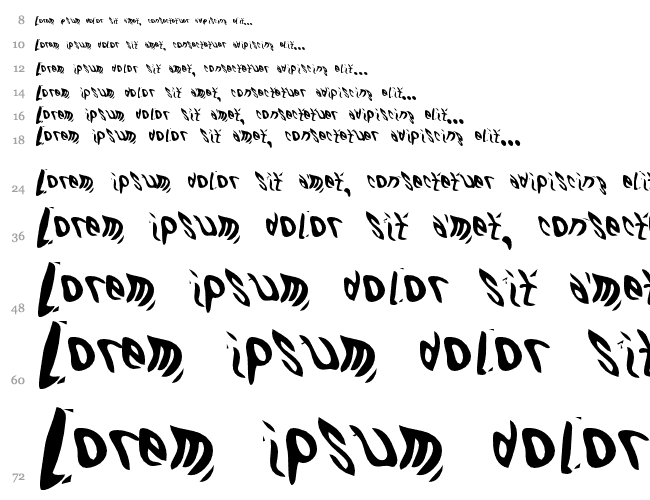 8 Lorem ipsum dolor sit amet, consectetuer adipiscing elit...
10 Lorem ipsum dolor sit amet, consectetuer adipiscing elit...
12 Lorem ipsum dolor sit amet, consectetuer adipiscing elit...
14 Lorem ipsum dolor sit amet, consectetuer adipiscing elit...
16 Lorem ipsum dolor sit amet, consectetuer adipiscing elit...
18 Lorem ipsum dolor sit amet, consectetuer adipiscing elit...
24 Lorem ipsum dolor sit amet, consectetuer adipiscing eli
36 Lorem ipsum dolor sit amet, consect
48 Lorem ipsum dolor sit ame
60 Lorem ipsum dolor sit
72 Lorem ipsum dolor